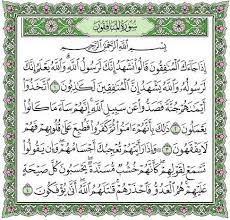 سُورَةُ الْمُنَافِقُونَ
بِسْمِ اللَّهِ الرَّحْمَٰنِ الرَّحِيمِ
إِذَا جَاءَكَ الْمُنَٰفِقُونَ قَالُوا نَشْهَدُ إِنَّكَ لَرَسُولُ اللَّهِ وَاللَّهُ يَعْلَمُ إِنَّكَ
لَرَسُولُهُ وَاللَّهُ يَشْهَدُ إِنَّ الْمُنَٰفِقِينَ لَكَٰذِبُونَ ١ اتَّخَذُوا
أَيْمَٰنَهُمْ جُنَّةً فَصَدُّوا عَن سَبِيلِ اللَّهِ إِنَّهُمْ سَاءَ مَا كَانُوا
يَعْمَلُونَ ٢ ذَٰلِكَ بِأَنَّهُمْ ءَامَنُوا ثُمَّ كَفَرُوا فَطُبِعَ عَلَىٰ قُلُوبِهِمْ فَهُمْ
لَا يَفْقَهُونَ ٣ وَإِذَا رَأَيْتَهُمْ تُعْجِبُكَ أَجْسَامُهُمْ وَإِن يَقُولُوا
تَسْمَعْ لِقَوْلِهِمْ كَأَنَّهُمْ خُشُبٌ مُّسَنَّدَةٌ يَحْسَبُونَ كُلَّ صَيْحَةٍ
عَلَيْهِمْ هُمُ الْعَدُوُّ فَاحْذَرْهُمْ قَٰتَلَهُمُ اللَّهُ أَنَّىٰ يُؤْفَكُونَ ٤